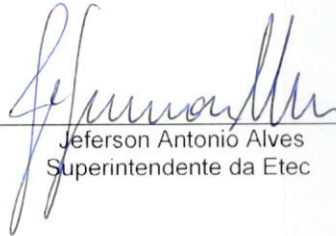 Jeferson Antonio Alves
Superintendente da Etec